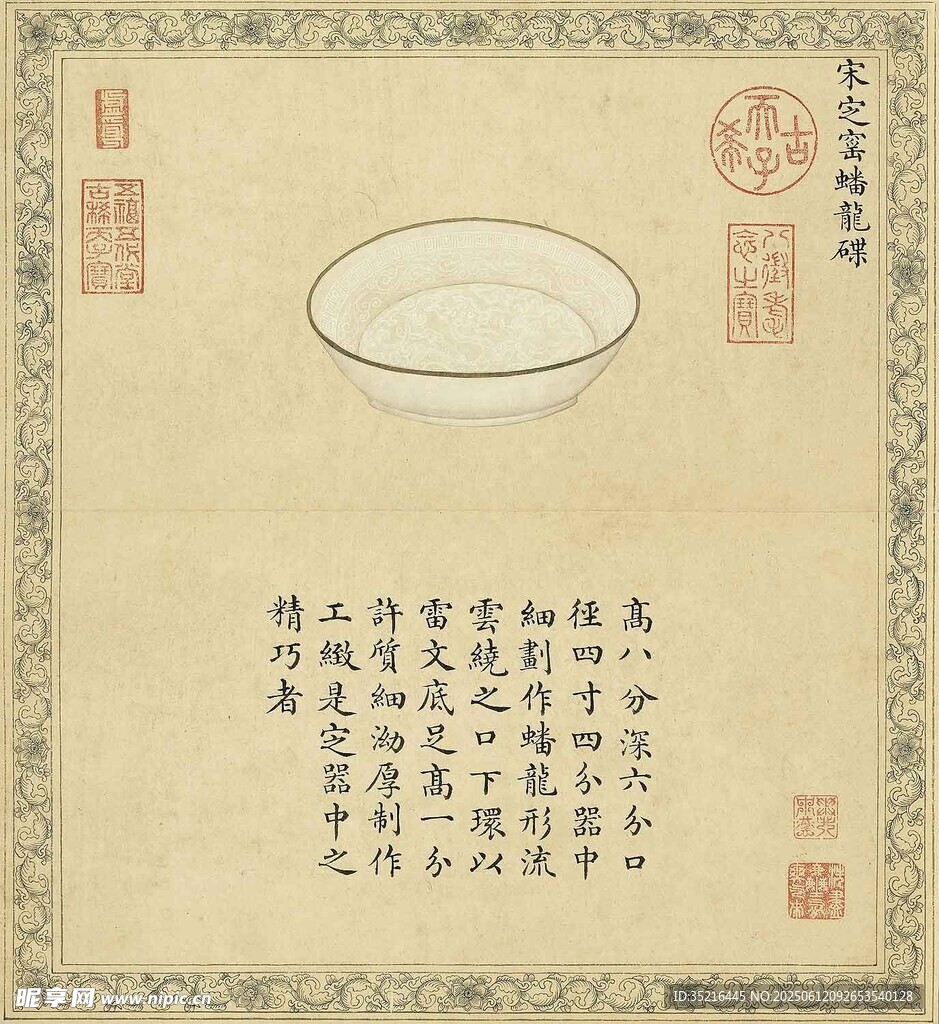 宋㝎窰蟠龍碟
古希天子
八徵耄念之寶
五福五代堂古稀天子寶
髙八分深六分口
徑四寸四分器中
細劃作蟠龍形流
雲繞之口下環以
雷文底足髙一分
許質細泑厚制作
工緻是㝎器中之
精巧者
昵享网 www.nipic.cn
ID:35216445 NO:20250612092653540128